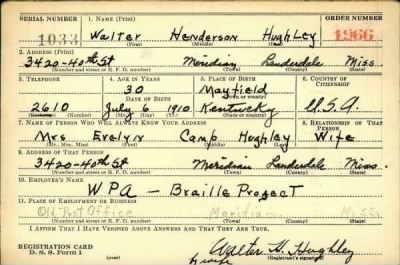 SERIAL NUMBER 1. NAME (Print) ORDER NUMBER
1033 Walter Henderson Hughley 1966
(First) (Middle) (Last)
2. ADDRESS (Print)
3420-40th St Meridian Lauderdale Miss.
(Number and street or R. F. D. number) (Town) (County) (State)
3. TELEPHONE 4. AGE IN YEARS 5. PLACE OF BIRTH 6. COUNTRY OF CITIZENSHIP
30 Mayfield
DATE OF BIRTH (Town or county)
2610 July 6 1910 Kentucky U.S.A.
(Exchange) (Number) (Mo.) (Day) (Yr.) (State or country)
7. NAME OF PERSON WHO WILL ALWAYS KNOW YOUR ADDRESS 8. RELATIONSHIP OF THAT PERSON
Mrs. Evelyn Camp Hughley Wife
(Mr., Mrs., Miss) (First) (Middle) (Last)
9. ADDRESS OF THAT PERSON
3420-40th St Meridian Lauderdale Miss.
(Number and street or R. F. D. number) (Town) (County) (State)
10. EMPLOYER'S NAME
WPA - Braille Project
11. PLACE OF EMPLOYMENT OR BUSINESS
Old Post Office Meridian Miss
(Number and street or R. F. D. number) (Town) (County) (State)
I AFFIRM THAT I HAVE VERIFIED ABOVE ANSWERS AND THAT THEY ARE TRUE.
REGISTRATION CARD
D. S. S. Form 1 Walter H. Hughley
(Registrant's signature)